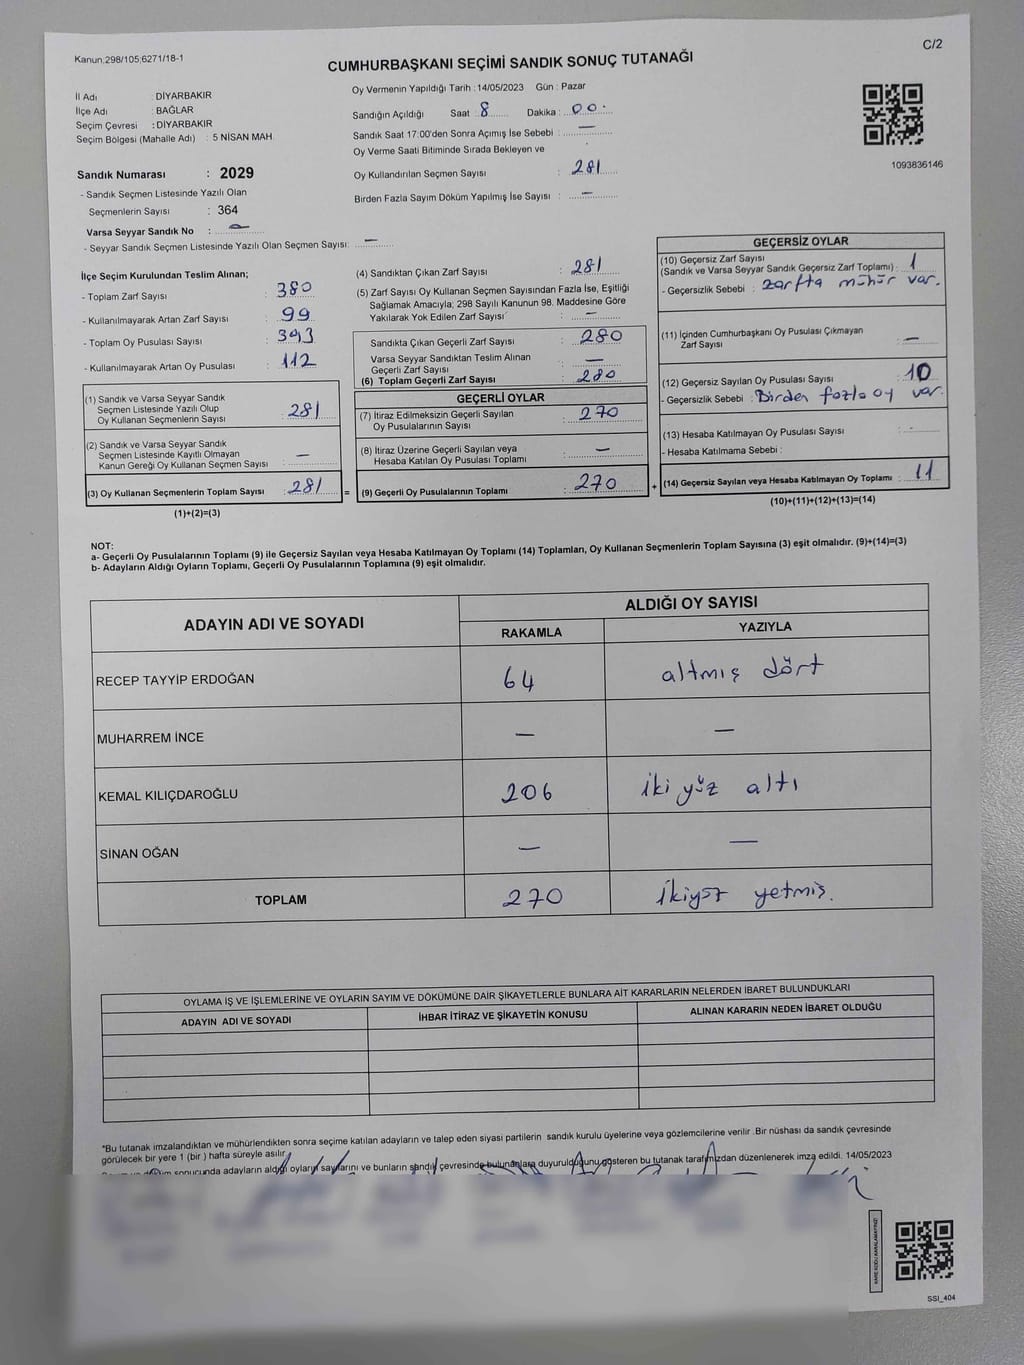 Kanun.298/105;6271/18-1
C/2
CUMHURBAŞKANI SEÇİMİ SANDIK SONUÇ TUTANAĞI
İl Adı : DİYARBAKIR
İlçe Adı : BAĞLAR
Seçim Çevresi : DİYARBAKIR
Seçim Bölgesi (Mahalle Adı) : 5 NİSAN MAH.
Sandık Numarası : 2029
- Sandık Seçmen Listesinde Yazılı Olan
Seçmenlerin Sayısı : 364
Varsa Seyyar Sandık No : —
- Seyyar Sandık Seçmen Listesinde Yazılı Olan Seçmen Sayısı: —
Oy Vermenin Yapıldığı Tarih : 14/05/2023 Gün : Pazar
Sandığın Açıldığı Saat : 8 Dakika : 00
Sandık Saat 17:00'den Sonra Açımış İse Sebebi : —
Oy Verme Saati Bitiminde Sırada Bekleyen ve
Oy Kullandırılan Seçmen Sayısı : 281
Birden Fazla Sayım Döküm Yapılmış İse Sayısı : —
1093836146
İlçe Seçim Kurulundan Teslim Alınan;
- Toplam Zarf Sayısı : 380
- Kullanılmayarak Artan Zarf Sayısı : 99
- Toplam Oy Pusulası Sayısı : 393
- Kullanılmayarak Artan Oy Pusulası : 112
(1) Sandık ve Varsa Seyyar Sandık
Seçmen Listesinde Yazılı Olup
Oy Kullanan Seçmenlerin Sayısı : 281
(2) Sandık ve Varsa Seyyar Sandık
Seçmen Listesinde Kayıtlı Olmayan
Kanun Gereği Oy Kullanan Seçmen Sayısı : —
(3) Oy Kullanan Seçmenlerin Toplam Sayısı : 281 =
(1)+(2)=(3)
(4) Sandıktan Çıkan Zarf Sayısı : 281
(5) Zarf Sayısı Oy Kullanan Seçmen Sayısından Fazla İse, Eşitliği
Sağlamak Amacıyla; 298 Sayılı Kanunun 98. Maddesine Göre
Yakılarak Yok Edilen Zarf Sayısı : —
Sandıkta Çıkan Geçerli Zarf Sayısı : 280
Varsa Seyyar Sandıktan Teslim Alınan
Geçerli Zarf Sayısı : —
(6) Toplam Geçerli Zarf Sayısı : 280
GEÇERLİ OYLAR
(7) İtiraz Edilmeksizin Geçerli Sayılan
Oy Pusulalarının Sayısı : 270
(8) İtiraz Üzerine Geçerli Sayılan veya
Hesaba Katılan Oy Pusulası Toplamı : —
(9) Geçerli Oy Pusulalarının Toplamı : 270 +
GEÇERSİZ OYLAR
(10) Geçersiz Zarf Sayısı
(Sandık ve Varsa Seyyar Sandık Geçersiz Zarf Toplamı) : 1
- Geçersizlik Sebebi : zarfta mühür var.
(11) İçinden Cumhurbaşkanı Oy Pusulası Çıkmayan
Zarf Sayısı : —
(12) Geçersiz Sayılan Oy Pusulası Sayısı : 10
- Geçersizlik Sebebi : Birden fazla oy var.
(13) Hesaba Katılmayan Oy Pusulası Sayısı :
- Hesaba Katılmama Sebebi :
(14) Geçersiz Sayılan veya Hesaba Katılmayan Oy Toplamı : 11
(10)+(11)+(12)+(13)=(14)
NOT:
a- Geçerli Oy Pusulalarının Toplamı (9) ile Geçersiz Sayılan veya Hesaba Katılmayan Oy Toplamı (14) Toplamları, Oy Kullanan Seçmenlerin Toplam Sayısına (3) eşit olmalıdır. (9)+(14)=(3)
b- Adayların Aldığı Oyların Toplamı, Geçerli Oy Pusulalarının Toplamına (9) eşit olmalıdır.
ADAYIN ADI VE SOYADI
ALDIĞI OY SAYISI
RAKAMLA YAZIYLA
RECEP TAYYİP ERDOĞAN 64 altmış dört
MUHARREM İNCE — —
KEMAL KILIÇDAROĞLU 206 iki yüz altı
SİNAN OĞAN — —
TOPLAM 270 ikiyüz yetmiş.
OYLAMA İŞ VE İŞLEMLERİNE VE OYLARIN SAYIM VE DÖKÜMÜNE DAİR ŞİKAYETLERLE BUNLARA AİT KARARLARIN NELERDEN İBARET BULUNDUKLARI
ADAYIN ADI VE SOYADI İHBAR İTİRAZ VE ŞİKAYETİN KONUSU ALINAN KARARIN NEDEN İBARET OLDUĞU
*Bu tutanak imzalandıktan ve mühürlendikten sonra seçime katılan adayların ve talep eden siyasi partilerin sandık kurulu üyelerine veya gözlemcilerine verilir. Bir nüshası da sandık çevresinde
görülecek bir yere 1 (bir) hafta süreyle asılır.
sonucunda adayların aldığı oyların sayılarını ve bunların sandık çevresinde bulunanlara duyurulduğunu gösteren bu tutanak tarafımızdan düzenlenerek imza edildi. 14/05/2023
SSI_404